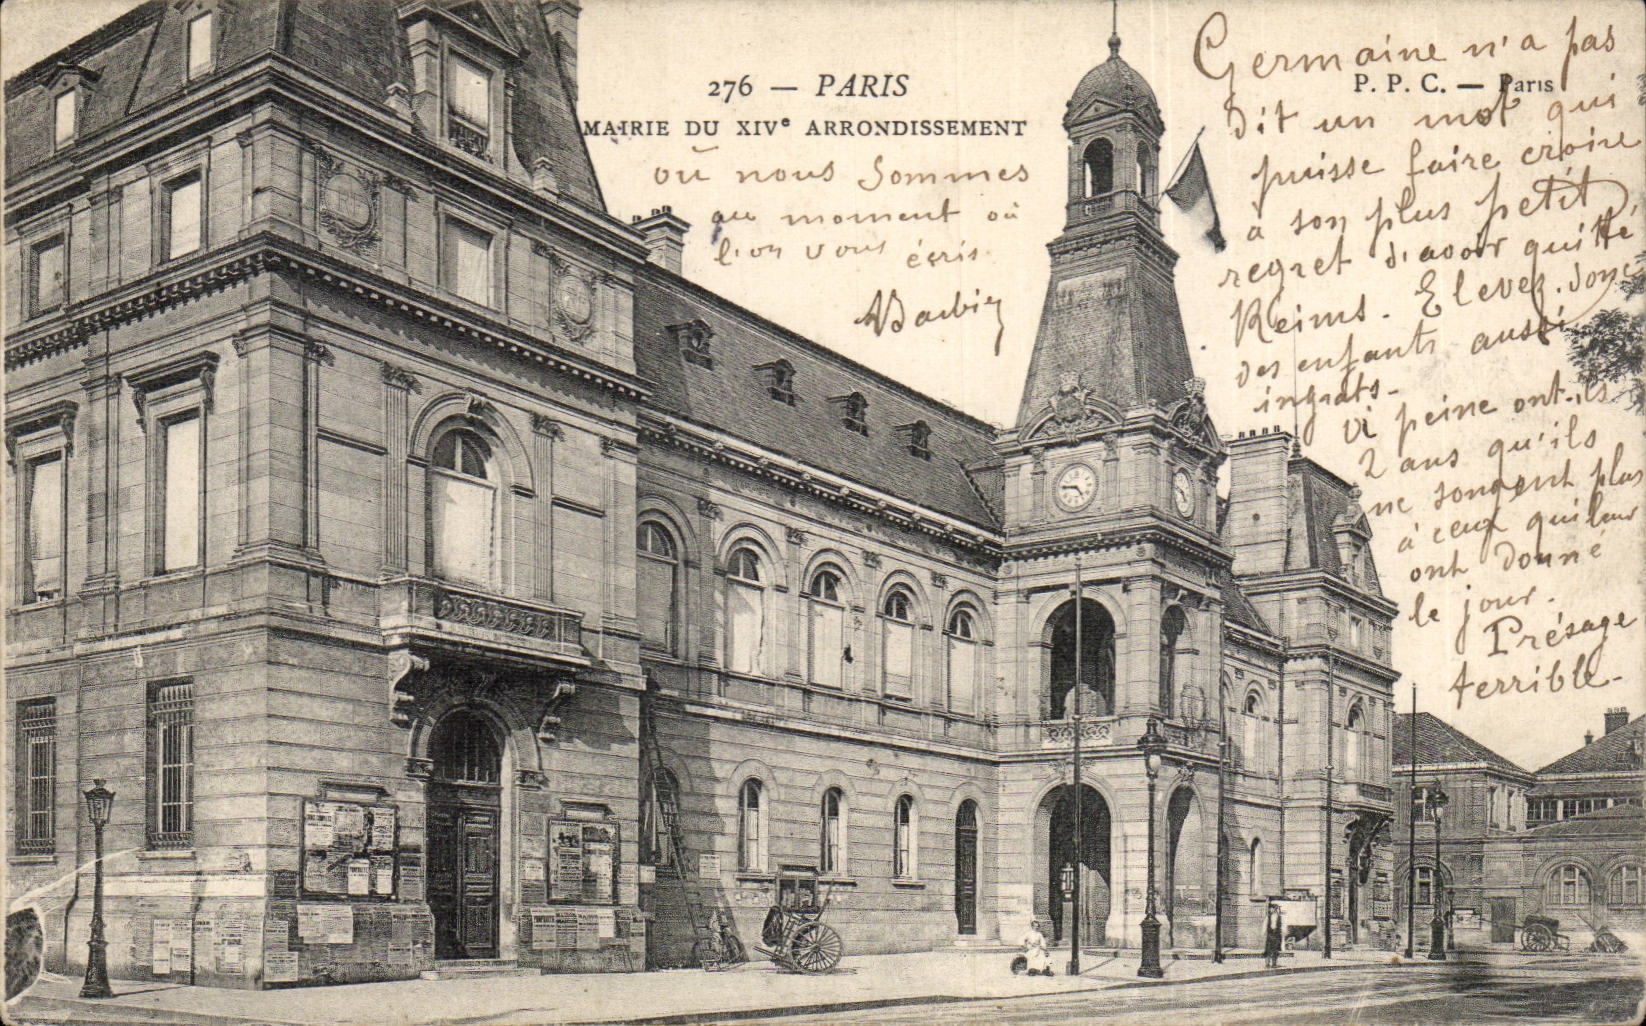 276 — PARIS
MAIRIE DU XIVe ARRONDISSEMENT
P. P. C. — Paris
où nous sommes
au moment où
l'on vous écris
Germaine n'a pas
dit un mot qui
puisse faire croire
à son plus petit
regret d'avoir quitté
Reims. Elevez donc
des enfants aussi
ingrats.
à peine ont-ils
2 ans qu'ils
ne songent plus
à ceux qui leur
ont donné
le jour.
Présage
terrible.